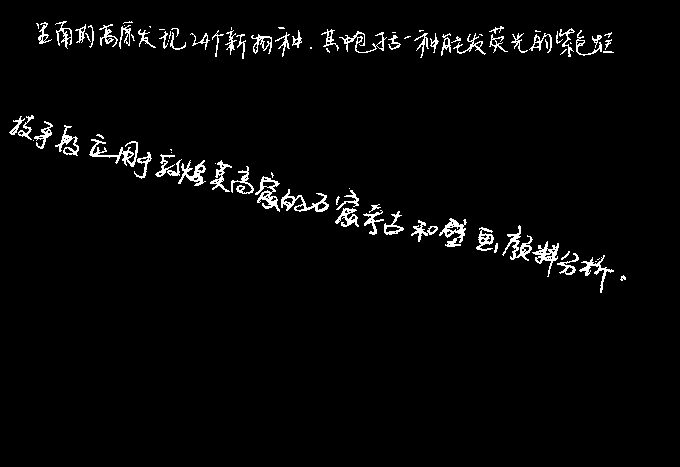 里南的高原发现24个新物种.其中包括一种能发荧光的紫色
技手段应用于敦煌莫高窟的石窟考古和壁画颜料分析。